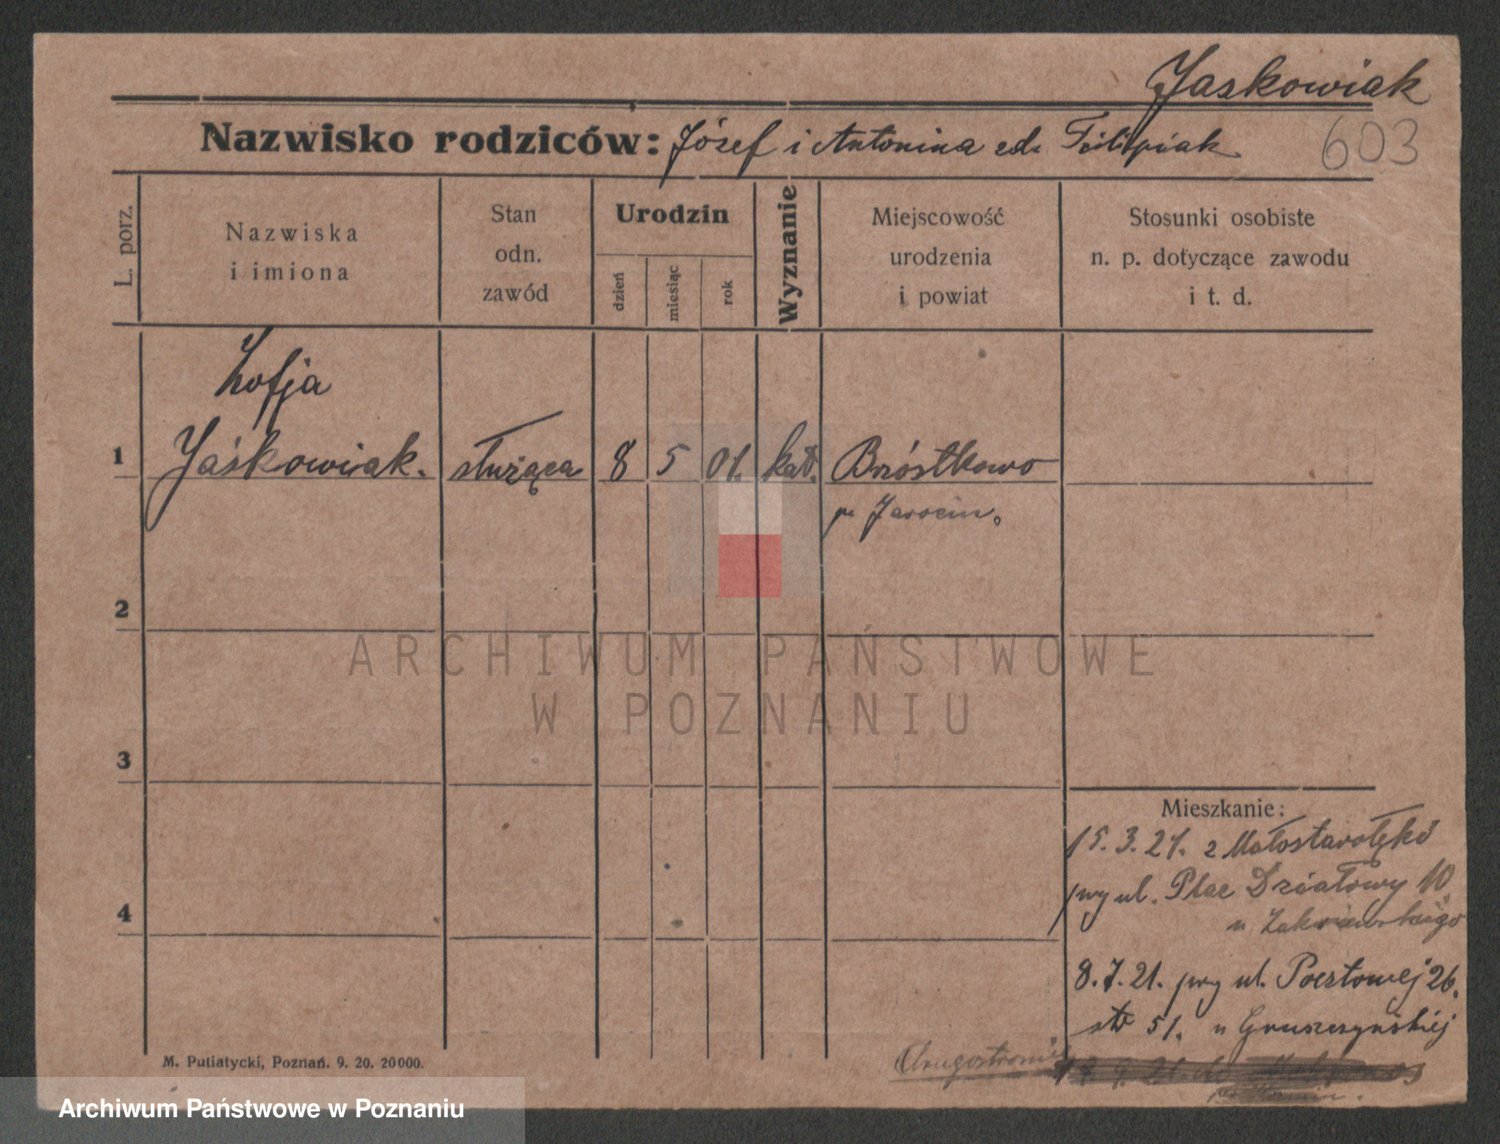 Jaskowiak
Nazwisko rodziców: Józef i Antonina zd. Filipiak
603
L. porz.
Nazwiska
i imiona
Stan
odn.
zawód
Urodzin
dzień
miesiąc
rok
Wyznanie
Miejscowość
urodzenia
i powiat
Stosunki osobiste
n. p. dotyczące zawodu
i t. d.
Zofja
1 Jaśkowiak. służąca 8 5 01. kat. Brzóstkowo
p. Jarocin.
2
ARCHIWUM PAŃSTWOWE
W POZNANIU
3
4
Mieszkanie:
15.3.21. z Małostarołęki
przy ul. Plac Działowy 10
u Zakrzewskiego
8.7.21. przy ul. Pocztowej 26.
stb 51. u Gruszczyńskiej
M. Putiatycki, Poznań. 9. 20. 20 000.
Drugostronnie
Archiwum Państwowe w Poznaniu